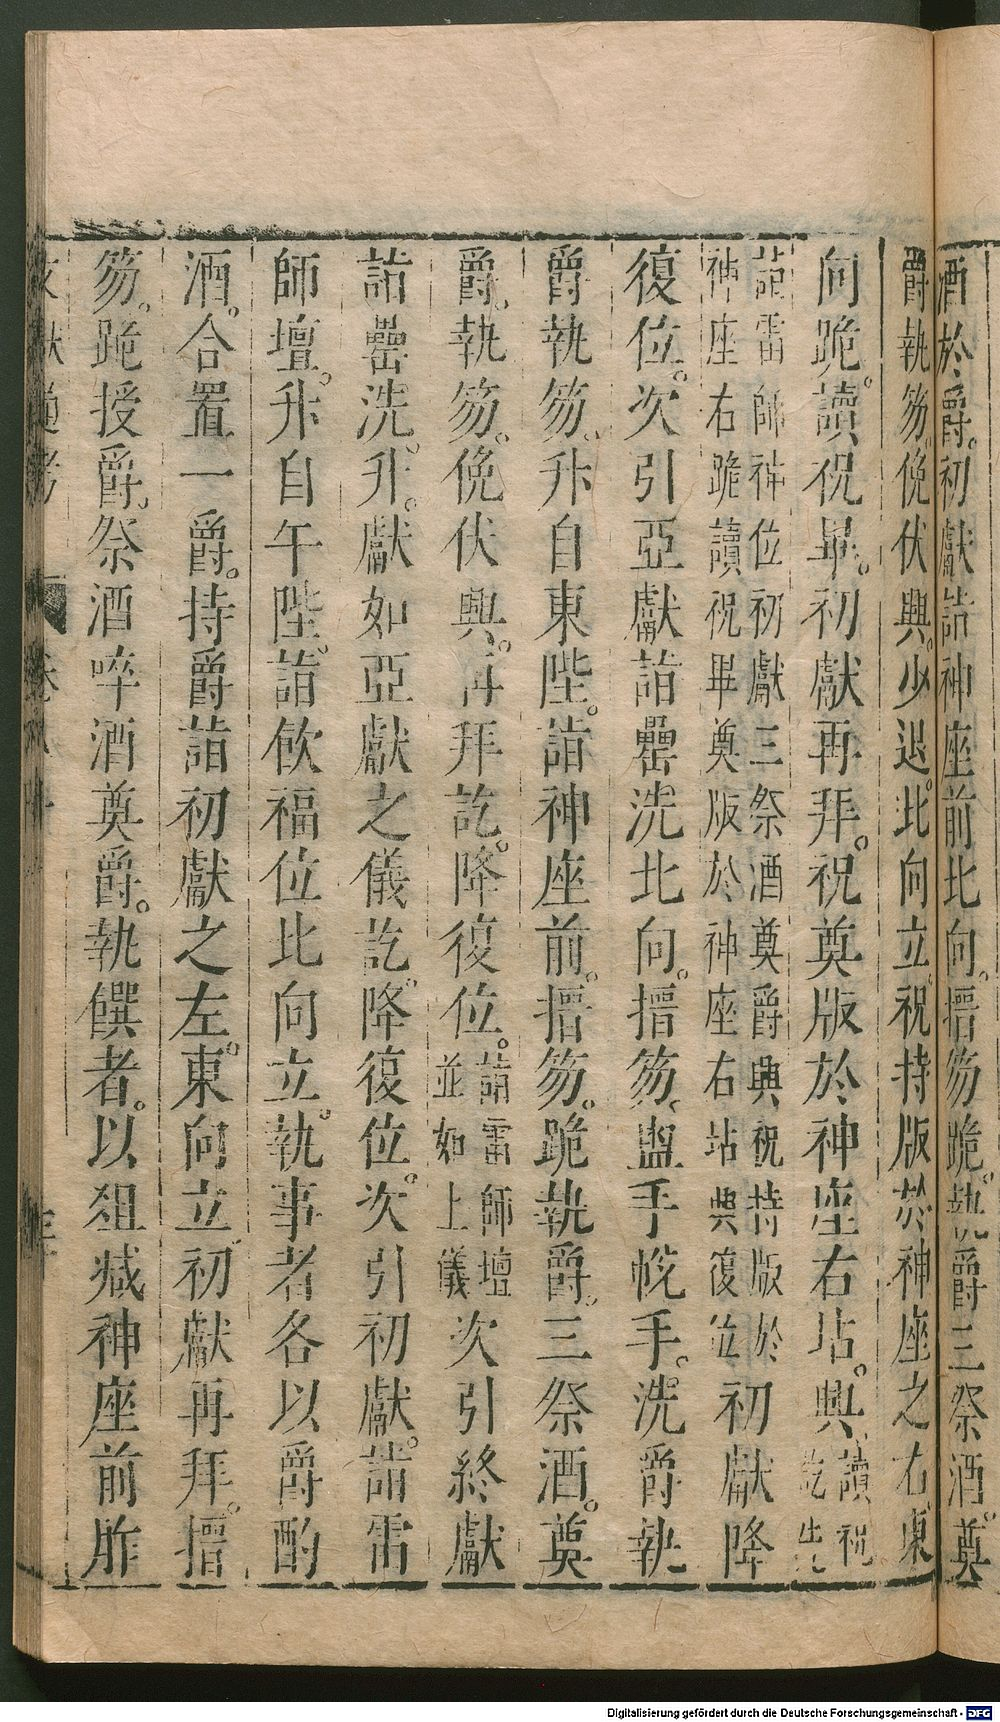 酒於爵。初獻詣神座前北向。搢笏跪。執爵三祭酒。奠
爵執笏。俛伏興。少退。北向立。祝持版於神座之右東
向跪。讀祝畢。初獻再拜。祝奠版於神座右坫。興讀祝訖先
詣雷師神位初獻三祭酒奠爵興祝持版於
神座右跪讀祝畢奠版於神座右坫興復位初獻降
復位。次引亞獻詣罍洗北向。搢笏盥手帨手。洗爵執
爵執笏。升自東陛。詣神座前。搢笏。跪執爵。三祭酒。奠
爵。執笏。俛伏興。再拜訖。降復位。詣雷師壇並如上儀次引終獻
詣罍洗。升。獻如亞獻之儀訖。降復位。次引初獻。詣雷
師壇。升自午陛。詣飲福位北向立。執事者各以爵酌
酒。合置一爵。持爵詣初獻之左。東向立。初獻再拜。搢
笏。跪授爵。祭酒啐酒奠爵。執饌者。以俎減神座前胙
文獻通考 卷八十